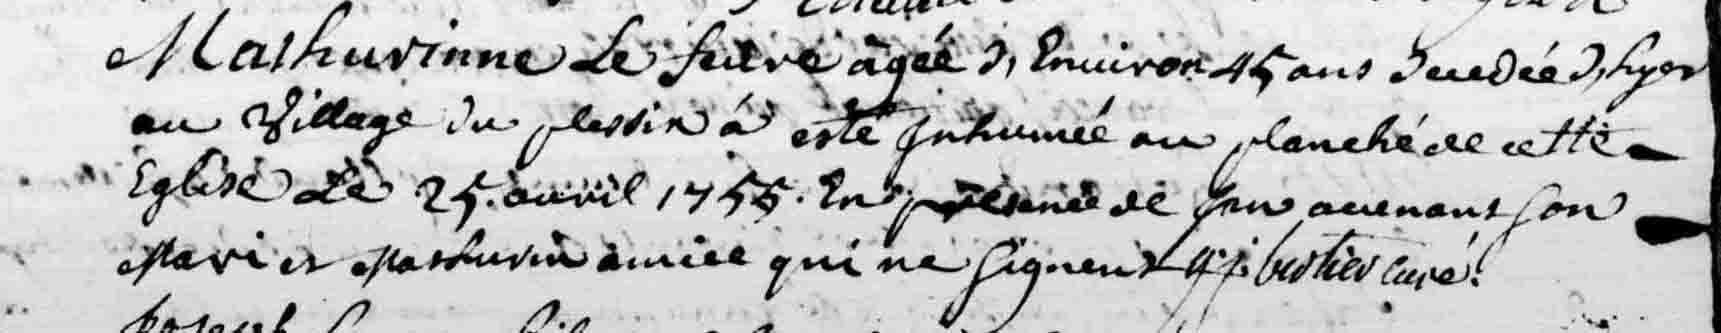 Mathurinne Le feuvre âgée d, Environ 45 ans decedée d, hyer
au Village du plessix á esté Inhumée au planché de cette
Eglise Le 25. avril 1755. En presence de Jan avenant son
Mari et Mathurin amice qui ne signent curé.
Joseph